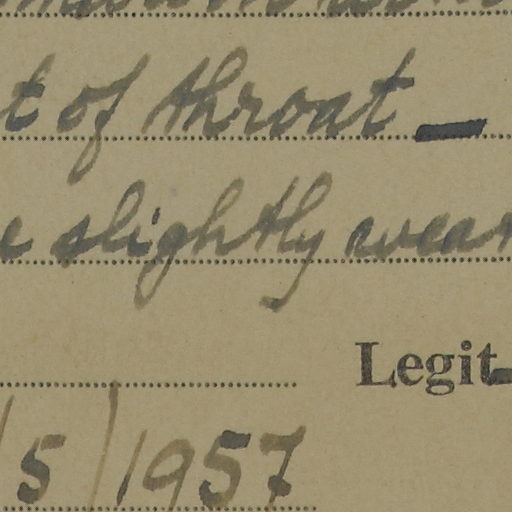 t of throat —
e slightly wear
Legit
/5/1957